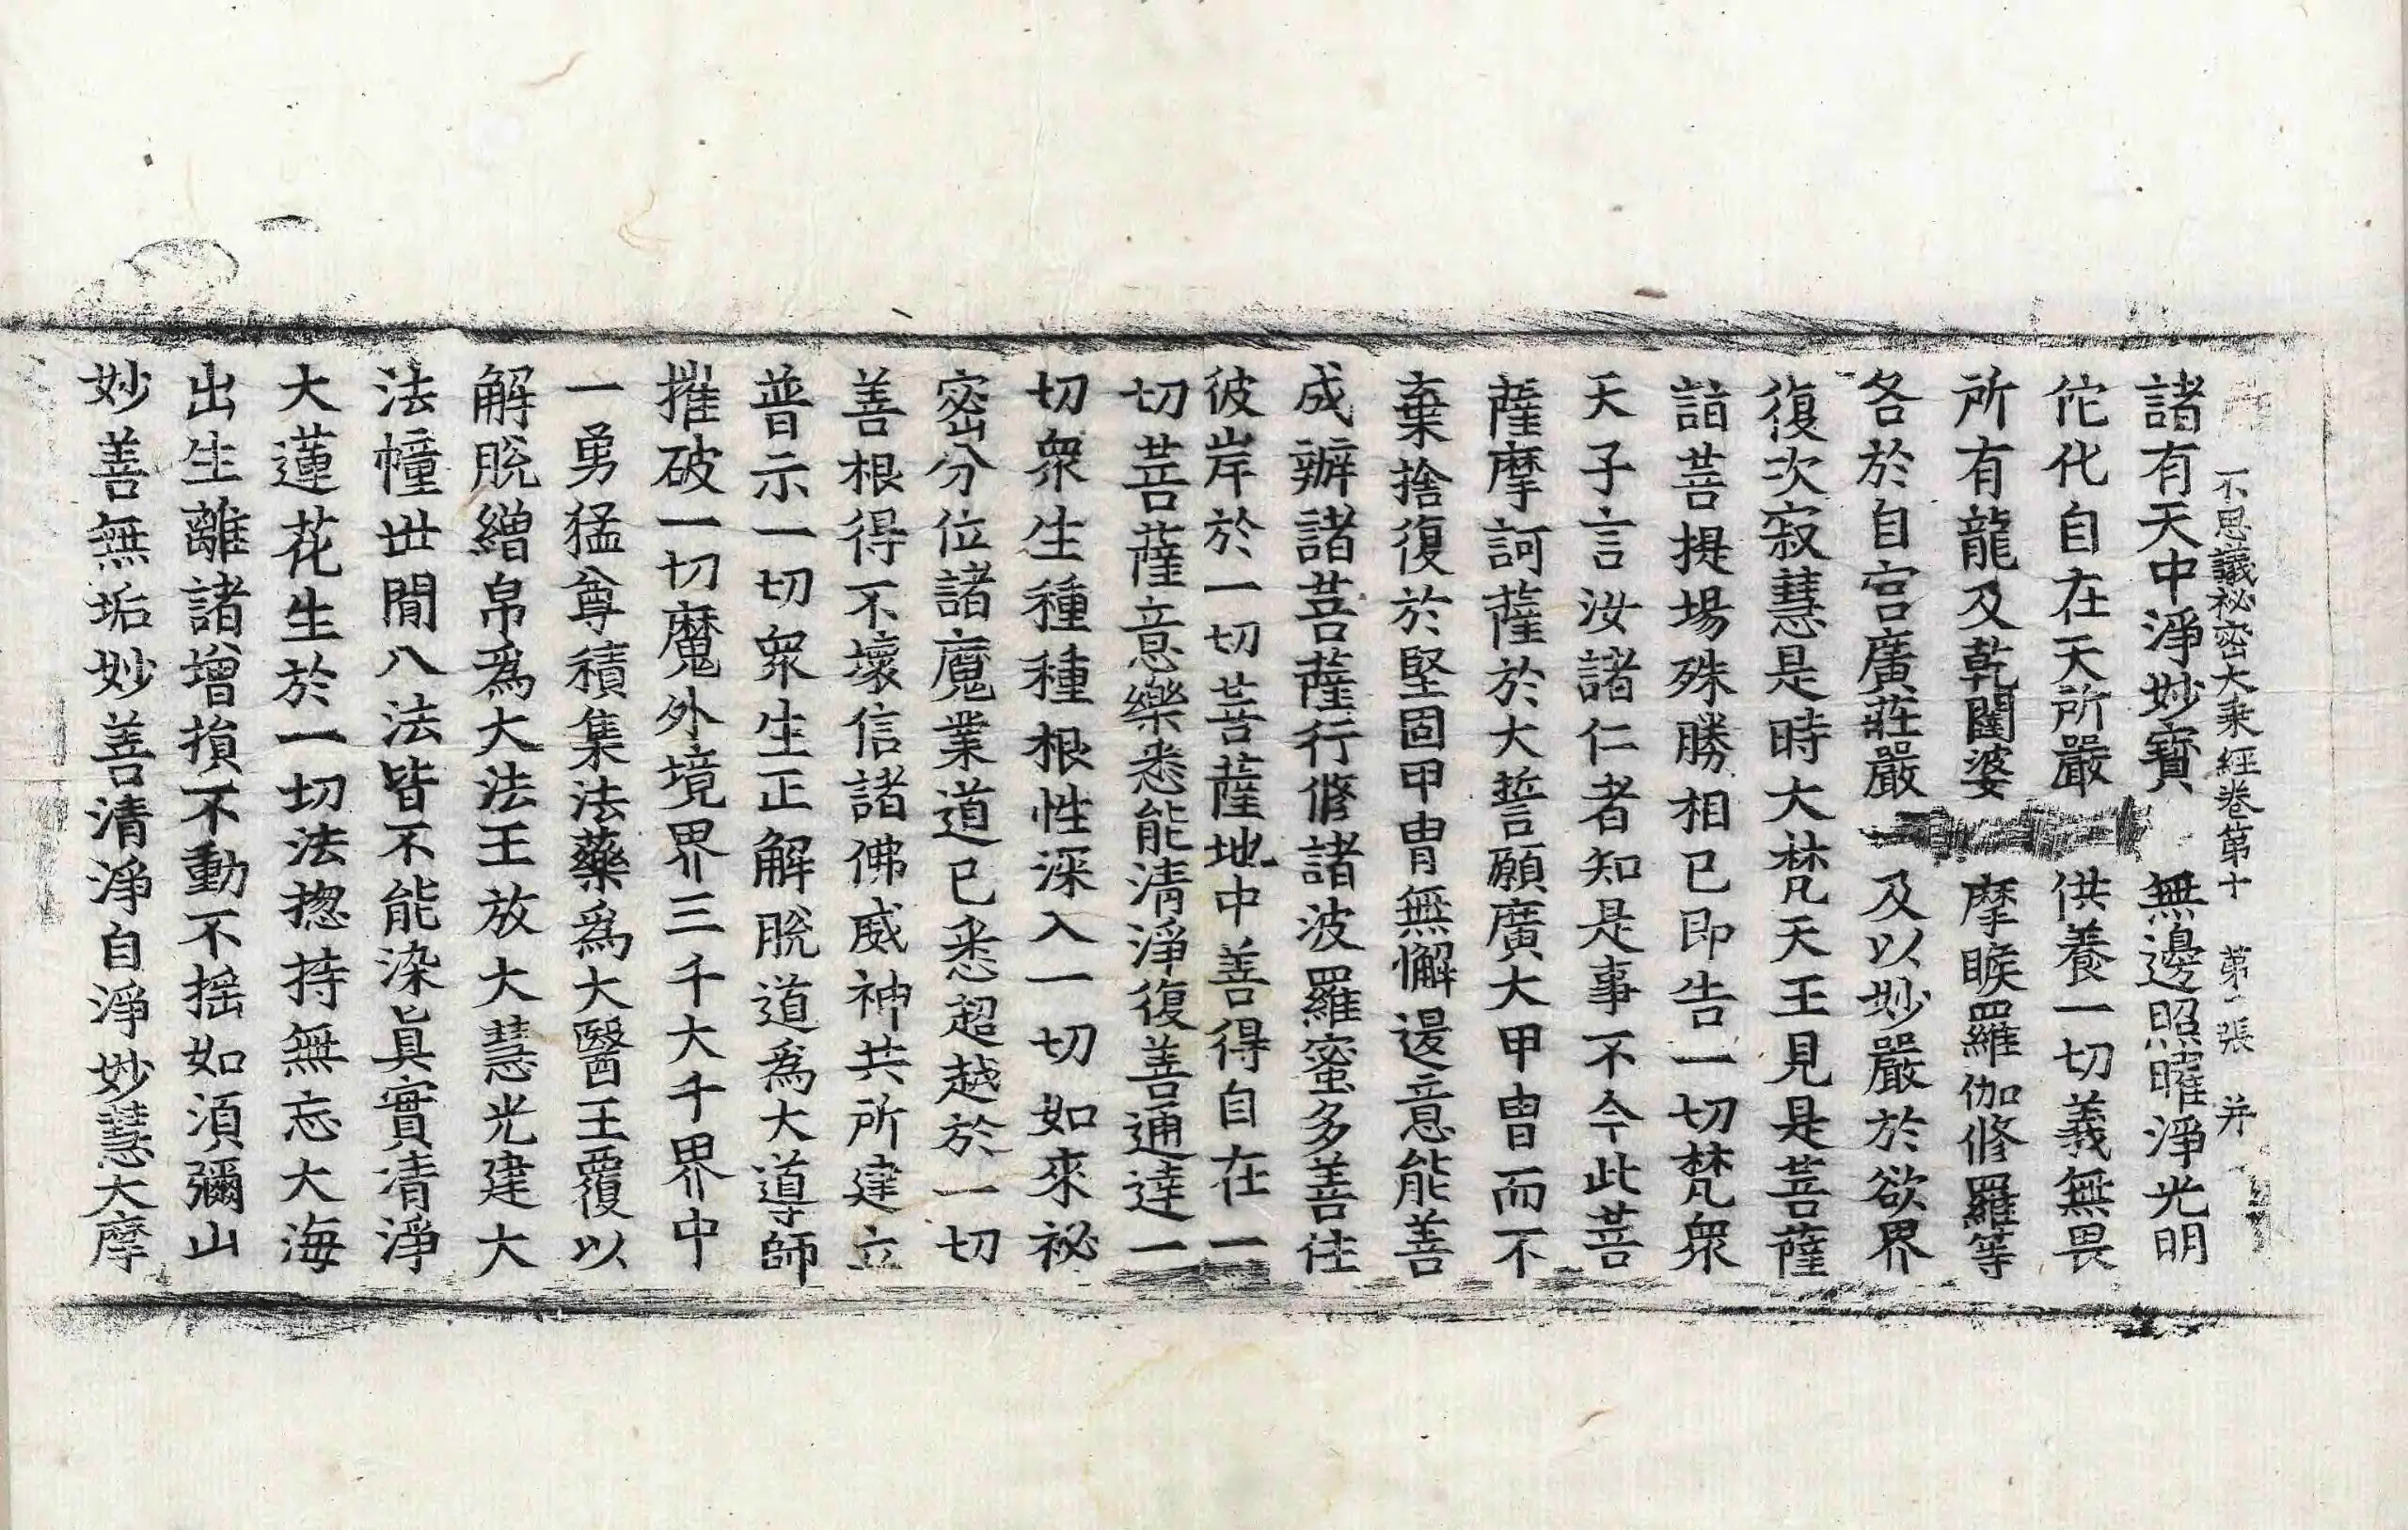 不思議祕密大乘經卷第十 第二張 并
諸有天中淨妙寶 無邊照曜淨光明
佗化自在天所嚴 供養一切義無畏
所有龍及乾闥婆 摩睺羅伽修羅等
各於自宮廣莊嚴 及以妙嚴於欲界
復次寂慧是時大梵天王見是菩薩
詣菩提場殊勝相已即告一切梵衆
天子言汝諸仁者知是事不今此菩
薩摩訶薩於大誓願廣大甲冑而不
棄捨復於堅固甲冑無懈邊意能善
成辦諸菩薩行修諸波羅蜜多善住
彼岸於一切菩薩地中善得自在一
切菩薩意樂悉能清淨復善通達一
切衆生種種根性深入一切如來祕
密分位諸魔業道已悉超越於一切
善根得不壞信諸佛威神共所建立
普示一切衆生正解脫道爲大導師
摧破一切魔外境界三千大千界中
一勇猛尊積集法藥爲大醫王覆以
解脫繒帛爲大法王放大慧光建大
法幢世閒八法皆不能染眞實清淨
大蓮花生於一切法揔持無忘大海
出生離諸增損不動不搖如湏彌山
妙善無垢妙善清淨自淨妙慧大摩